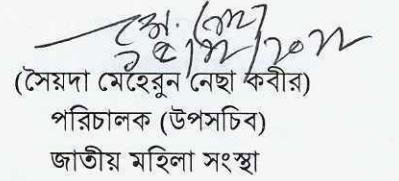 (সৈয়দা মেহেরুন নেছা কবীর)
পরিচালক (উপসচিব)
জাতীয় মহিলা সংস্থা